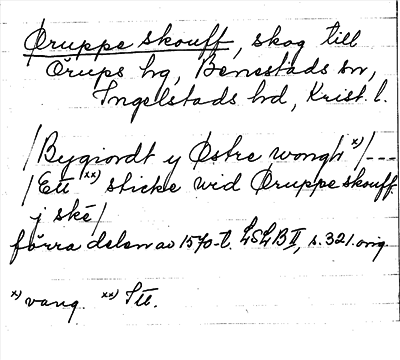 Øruppe skouff, skog till
Örups hg, Benestads sn,
Ingelstads hd, Krist. l.
/Bygiordt y Østre wongh x)/---
/Ett xx) sticke wid Øruppe skouff
j ské/
förra delen av 1570-t. LSLB II, s. 321. orig.
x) vang. xx) Itt.